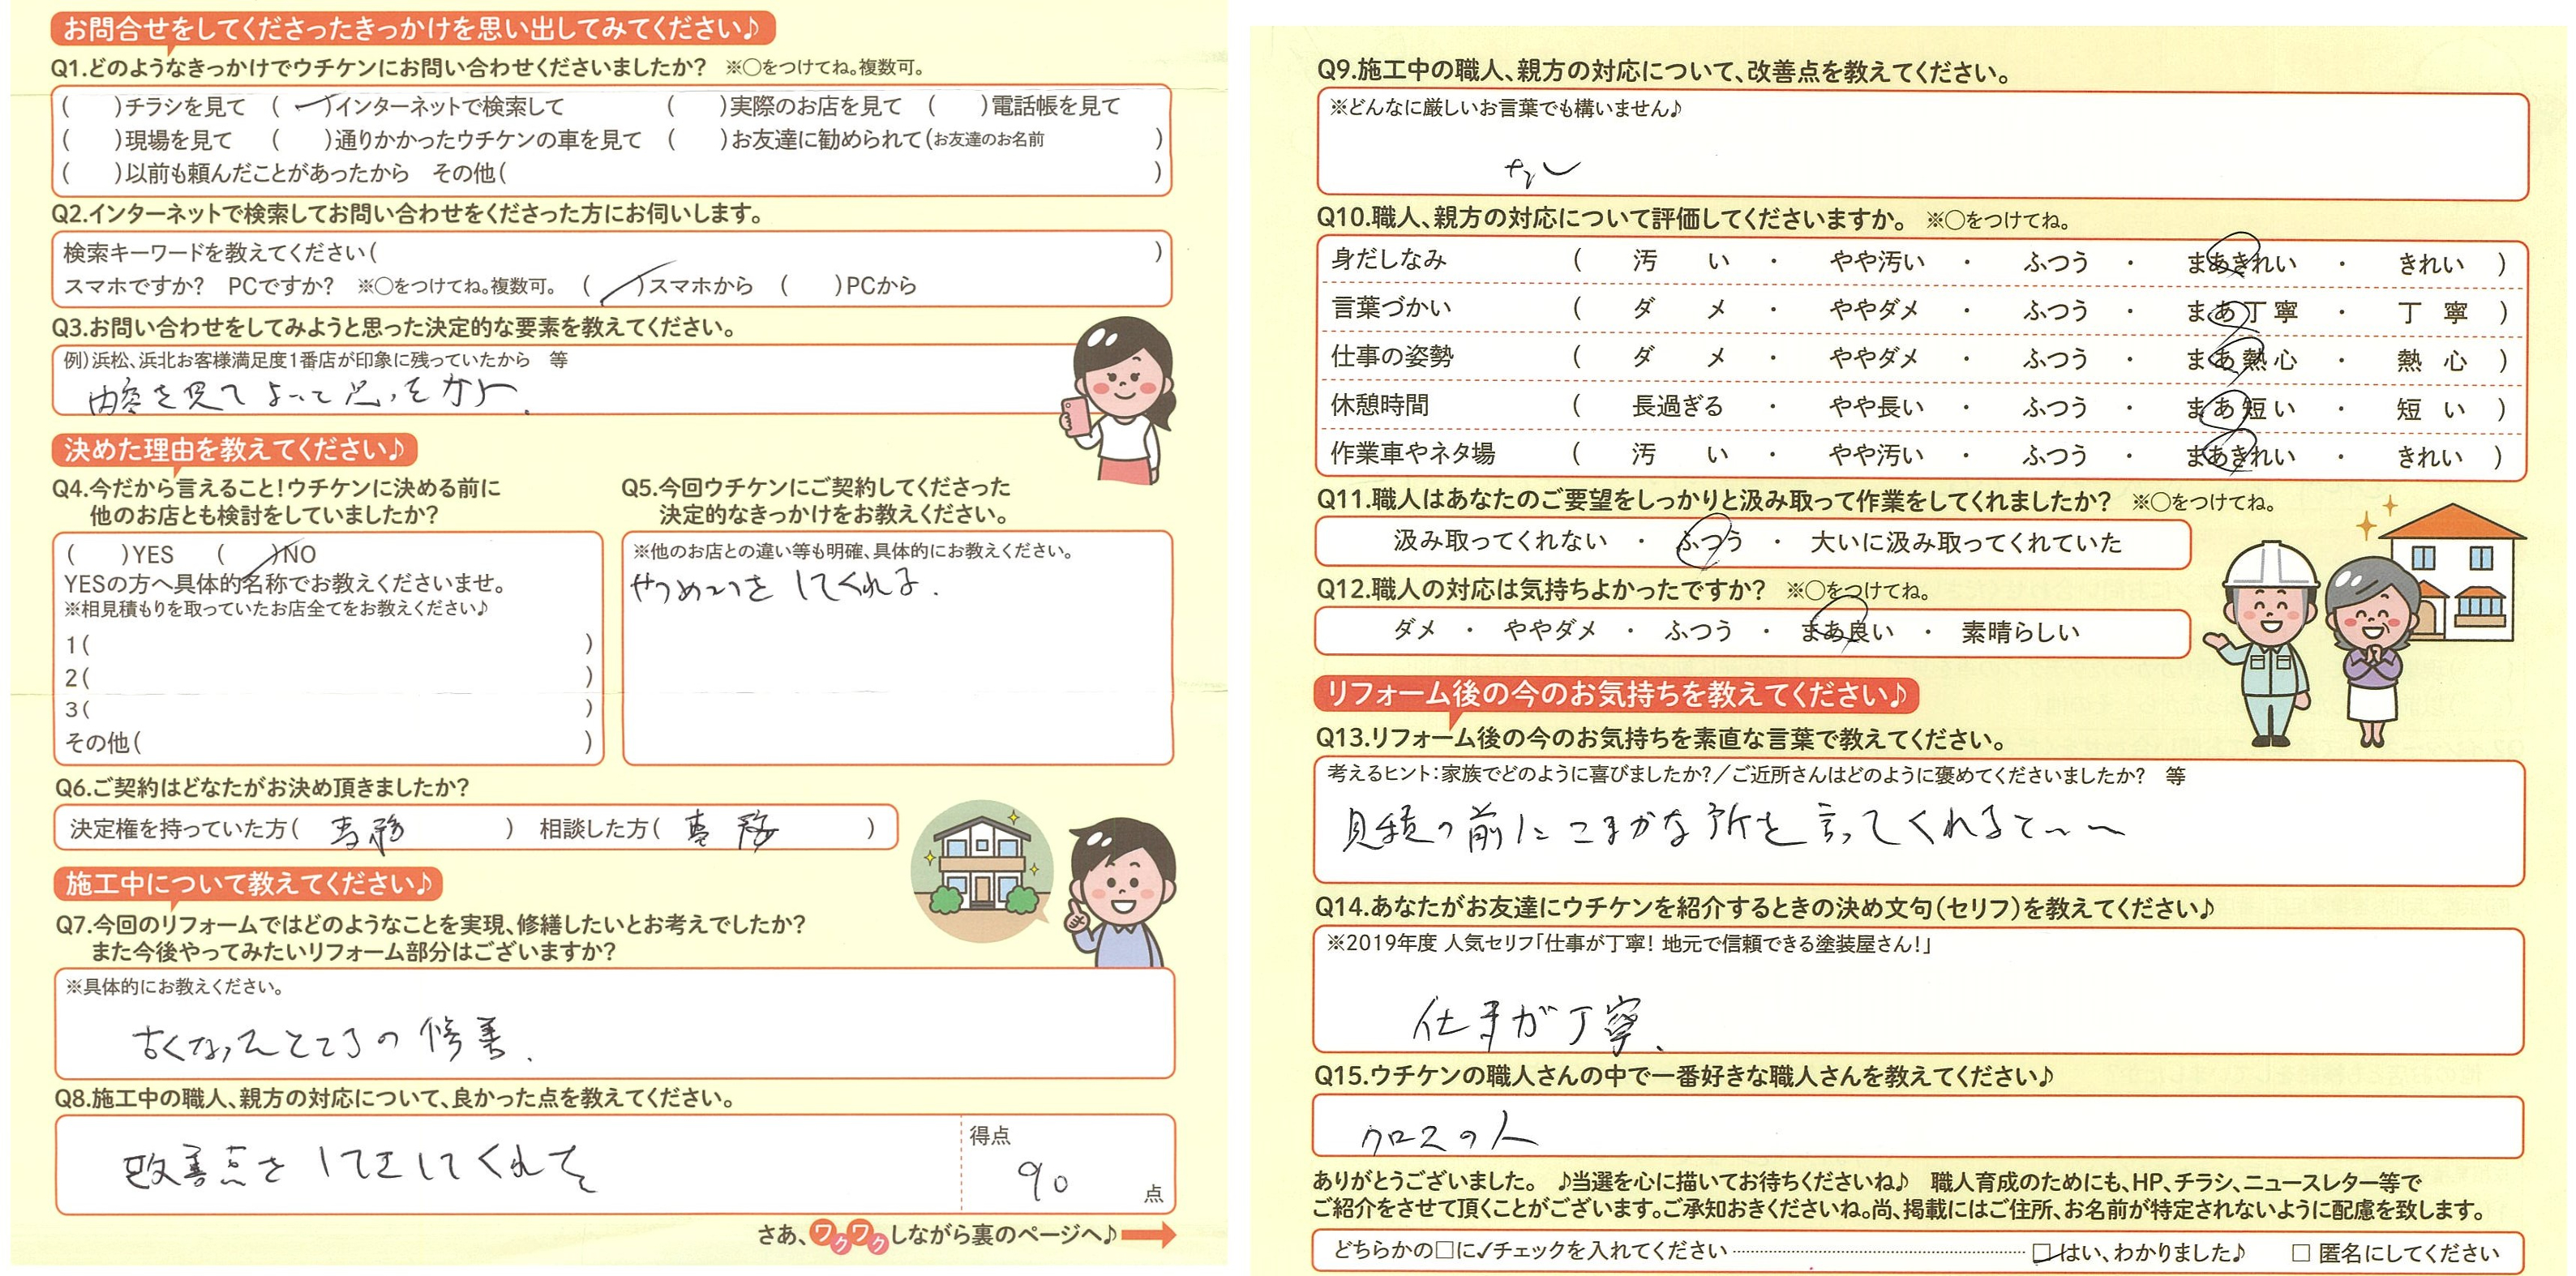 お問合せをしてくださったきっかけを思い出してみてください♪
Q1.どのようなきっかけでウチケンにお問い合わせくださいましたか? ※○をつけてね。複数可。
(　)チラシを見て (✓)インターネットで検索して (　)実際のお店を見て (　)電話帳を見て
(　)現場を見て (　)通りかかったウチケンの車を見て (　)お友達に勧められて(お友達のお名前　)
(　)以前も頼んだことがあったから その他(　)
Q2.インターネットで検索してお問い合わせをくださった方にお伺いします。
検索キーワードを教えてください(　)
スマホですか? PCですか? ※○をつけてね。複数可。 (✓)スマホから (　)PCから
Q3.お問い合わせをしてみようと思った決定的な要素を教えてください。
例)浜松、浜北お客様満足度1番店が印象に残っていたから 等
内容を見てよって思ったから.
決めた理由を教えてください♪
Q4.今だから言えること!ウチケンに決める前に
他のお店とも検討をしていましたか?
(　)YES (✓)NO
YESの方へ具体的名称でお教えくださいませ。
※相見積もりを取っていたお店全てをお教えください♪
1(　)
2(　)
3(　)
その他(　)
Q5.今回ウチケンにご契約してくださった
決定的なきっかけをお教えください。
※他のお店との違い等も明確、具体的にお教えください。
してくれる.
Q6.ご契約はどなたがお決め頂きましたか?
決定権を持っていた方( 専務 ) 相談した方( 専務 )
施工中について教えてください♪
Q7.今回のリフォームではどのようなことを実現、修繕したいとお考えでしたか?
また今後やってみたいリフォーム部分はございますか?
※具体的にお教えください。
古くなったところの修善.
Q8.施工中の職人、親方の対応について、良かった点を教えてください。
改善点をしてきしてくれた
得点
90 点
さあ、ワクワクしながら裏のページへ♪
Q9.施工中の職人、親方の対応について、改善点を教えてください。
※どんなに厳しいお言葉でも構いません♪
なし
Q10.職人、親方の対応について評価してくださいますか。 ※○をつけてね。
身だしなみ ( 汚い ・ やや汚い ・ ふつう ・ まあきれい ・ きれい )
言葉づかい ( ダメ ・ ややダメ ・ ふつう ・ まあ丁寧 ・ 丁寧 )
仕事の姿勢 ( ダメ ・ ややダメ ・ ふつう ・ まあ熱心 ・ 熱心 )
休憩時間 ( 長過ぎる ・ やや長い ・ ふつう ・ まあ短い ・ 短い )
作業車やネタ場 ( 汚い ・ やや汚い ・ ふつう ・ まあきれい ・ きれい )
Q11.職人はあなたのご要望をしっかりと汲み取って作業をしてくれましたか? ※○をつけてね。
汲み取ってくれない ・ ふつう ・ 大いに汲み取ってくれていた
Q12.職人の対応は気持ちよかったですか? ※○をつけてね。
ダメ ・ ややダメ ・ ふつう ・ まあ良い ・ 素晴らしい
リフォーム後の今のお気持ちを教えてください♪
Q13.リフォーム後の今のお気持ちを素直な言葉で教えてください。
考えるヒント:家族でどのように喜びましたか?/ご近所さんはどのように褒めてくださいましたか? 等
見積の前にこまかな所を言ってくれるて~~
Q14.あなたがお友達にウチケンを紹介するときの決め文句(セリフ)を教えてください♪
※2019年度 人気セリフ「仕事が丁寧! 地元で信頼できる塗装屋さん!」
仕事が丁寧.
Q15.ウチケンの職人さんの中で一番好きな職人さんを教えてください♪
クロスの人
ありがとうございました。 ♪当選を心に描いてお待ちくださいね♪ 職人育成のためにも、HP、チラシ、ニュースレター等で
ご紹介をさせて頂くことがございます。ご承知おきくださいね。尚、掲載にはご住所、お名前が特定されないように配慮を致します。
どちらかの□に✓チェックを入れてください ☑はい、わかりました♪ □ 匿名にしてください